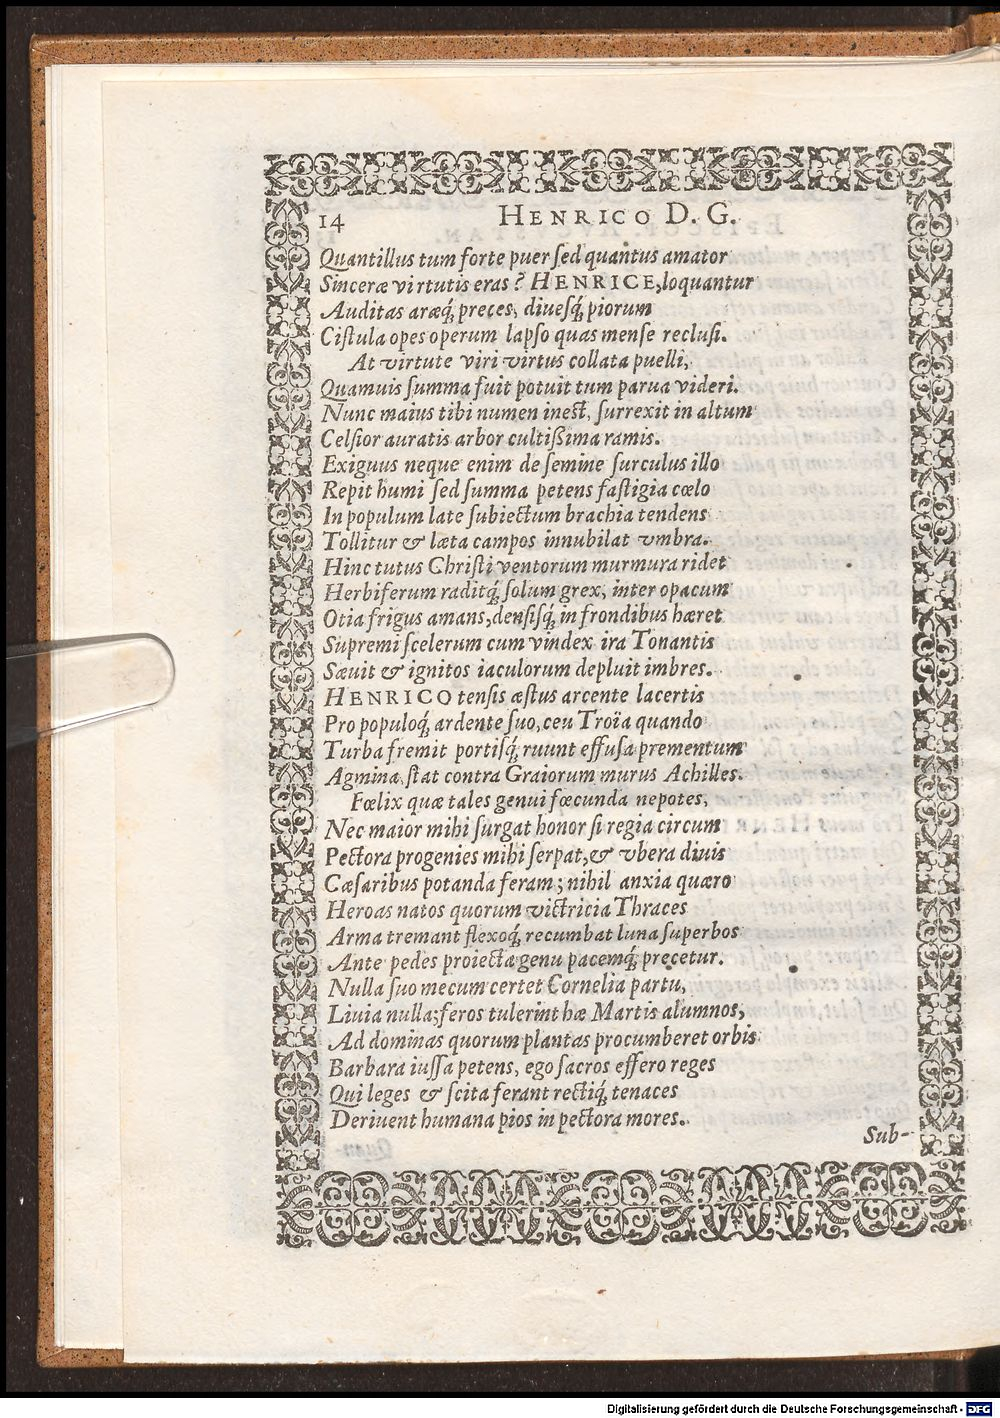 14 HENRICO D. G.
Quantillus tum forte puer sed quantus amator
Sinceræ virtutis eras? HENRICE, loquantur
Auditas aræq́; preces, diuesq́; piorum
Cistula opes operum lapso quas mense reclusi.
At virtute viri virtus collata puelli,
Quamuis summa fuit potuit tum parua videri.
Nunc maius tibi numen inest, surrexit in altum
Celsior auratis arbor cultißima ramis.
Exiguus neque enim de semine surculus illo
Repit humi sed summa petens fastigia cœlo
In populum late subiectum brachia tendens
Tollitur & læta campos innubilat vmbra.
Hinc tutus Christi ventorum murmura ridet
Herbiferum raditq́; solum grex, inter opacum
Otia frigus amans, densisq́; in frondibus hæret
Supremi scelerum cum vindex ira Tonantis
Sæuit & ignitos iaculorum depluit imbres.
HENRICO tensis æstus arcente lacertis
Pro populoq́; ardente suo, ceu Troïa quando
Turba fremit portisq́; ruunt effusa prementum
Agmina, stat contra Graiorum murus Achilles.
Fœlix quæ tales genui fœcunda nepotes,
Nec maior mihi surgat honor si regia circum
Pectora progenies mihi serpat, & vbera diuis
Cæsaribus potanda feram; nihil anxia quæro
Heroas natos quorum victricia Thraces
Arma tremant flexoq́; recumbat luna superbos
Ante pedes proiecta genu pacemq́; precetur.
Nulla suo mecum certet Cornelia partu,
Liuia nulla; feros tulerint hæ Martis alumnos,
Ad dominas quorum plantas procumberet orbis
Barbara iussa petens, ego sacros effero reges
Qui leges & scita ferant rectiq́; tenaces
Deriuent humana pios in pectora mores.
Sub-
Digitalisierung gefördert durch die Deutsche Forschungsgemeinschaft - DFG